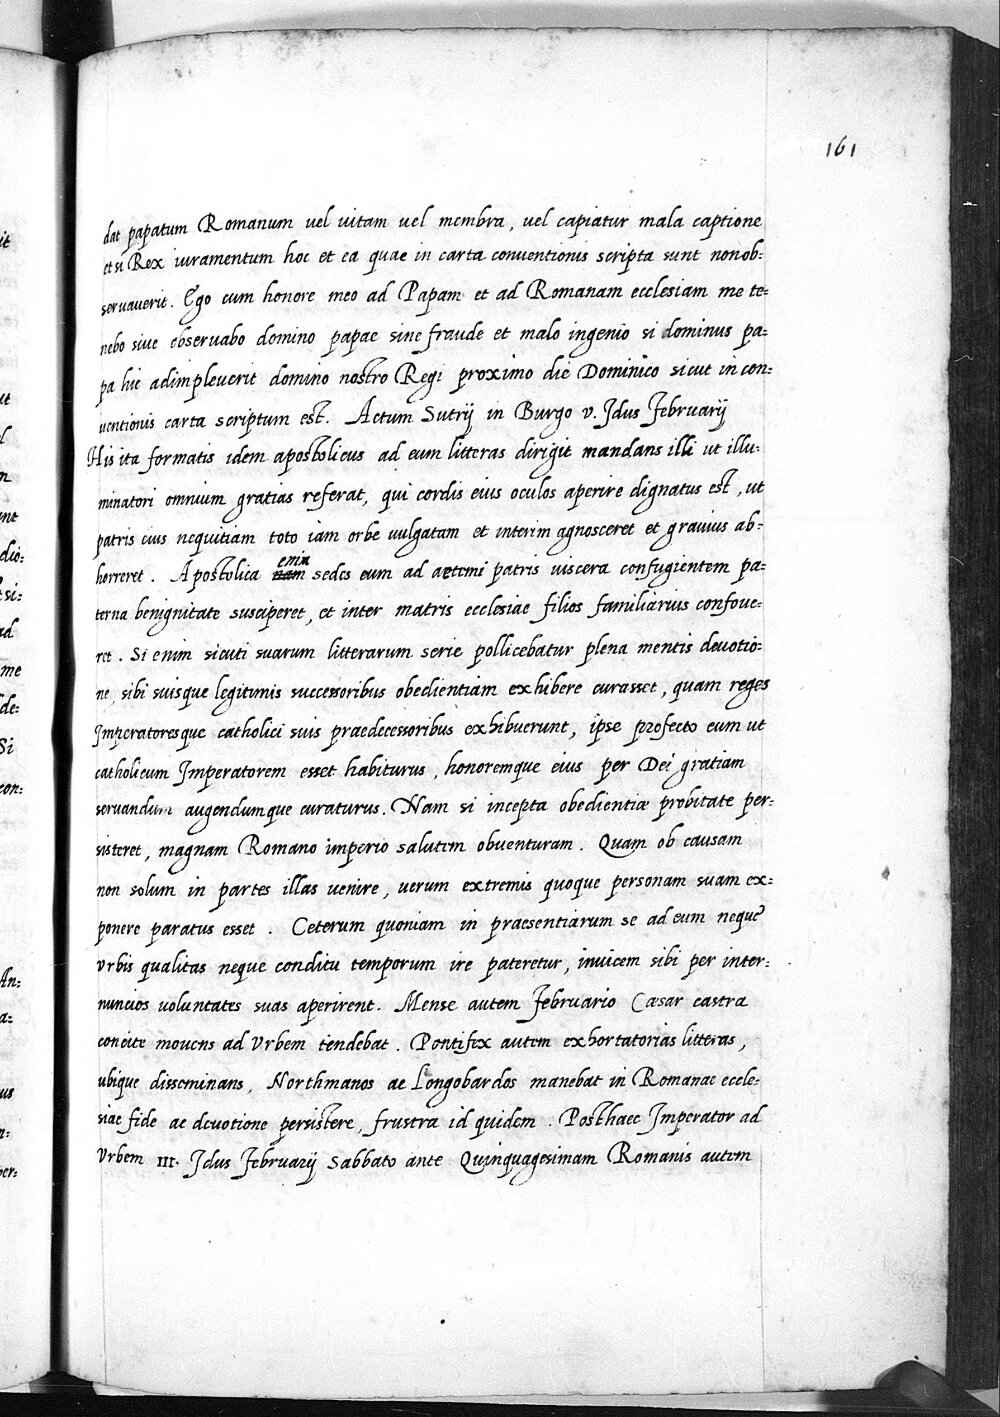 161
dat papatum Romanum vel vitam vel membra, vel capiatur mala captione
et si Rex iuramentum hoc et ea quae in carta conventionis scripta sunt non ob=
servaverit. Ego cum honore meo ad Papam et ad Romanam ecclesiam me te=
nebo sive observabo domino papae sine fraude et malo ingenio si dominus pa=
pa hic adimpleverit domino nostro Regi proximo die Dominico sicut in con=
ventionis carta scriptum est. Actum Sutrij in Burgo v. Idus Februarij
His ita formatis idem apostolicus ad eum litteras dirigit mandans illi ut illu=
minatori omnium gratias referat, qui cordis eius oculos aperire dignatus est, ut
patris eius nequitiam toto iam orbe vulgatam et interim agnosceret et gravius ab=
horreret. Apostolica enim sedes eum ad aeterni patris viscera confugientem pa=
terna benignitate susciperet, et inter matris ecclesiae filios familiarius confove=
ret. Si enim sicuti suarum litterarum serie pollicebatur plena mentis devotio=
ne, sibi suisque legitimis successoribus obedientiam exhibere curasset, quam reges
Imperatoresque catholici suis praedecessoribus exhibuerunt, ipse profecto eum ut
catholicum Imperatorem esset habiturus, honoremque eius per Dei gratiam
servandum augendumque curaturus. Nam si incepta obedientiae probitate per=
sisteret, magnam Romano imperio salutem obventuram. Quam ob causam
non solum in partes illas venire, verum extremis quoque personam suam ex=
ponere paratus esset. Ceterum quoniam in praesentiarum se ad eum neque
Urbis qualitas neque conditu temporum ire pateretur, invicem sibi per inter=
nuncios voluntates suas aperirent. Mense autem Februario Cæsar castra
concite movens ad Urbem tendebat. Pontifex autem exhortatorias litteras,
ubique disseminans, Northmanos ac Longobardos manebat in Romanae eccle=
siae fide ac devotione persistere, frustra id quidem. Posthaec Imperator ad
Urbem III. Idus Februarij Sabbato ante Quinquagesimam Romanis autem